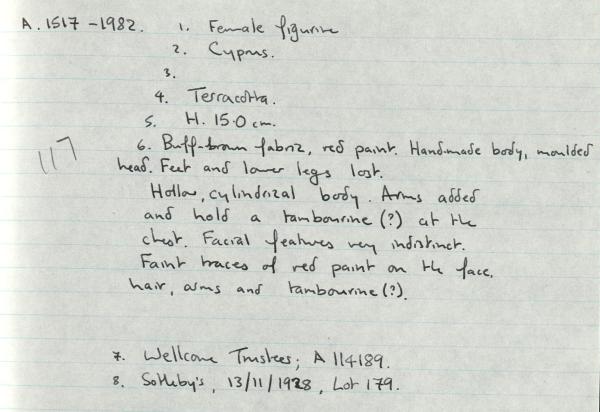 A. 1517 - 1982. 1. Female figurine
2. Cyprus.
3.
4. Terracotta.
5. H. 15.0 cm.
117
6. Buff-brown fabric, red paint. Handmade body, moulded
head. Feet and lower legs lost.
Hollow, cylindrical body. Arms added
and hold a tambourine (?) at the
chest. Facial features very indistinct.
Faint traces of red paint on the face,
hair, arms and tambourine (?).
7. Wellcome Trustees; A 114189.
8. Sotheby's, 13/11/1928, Lot 179.